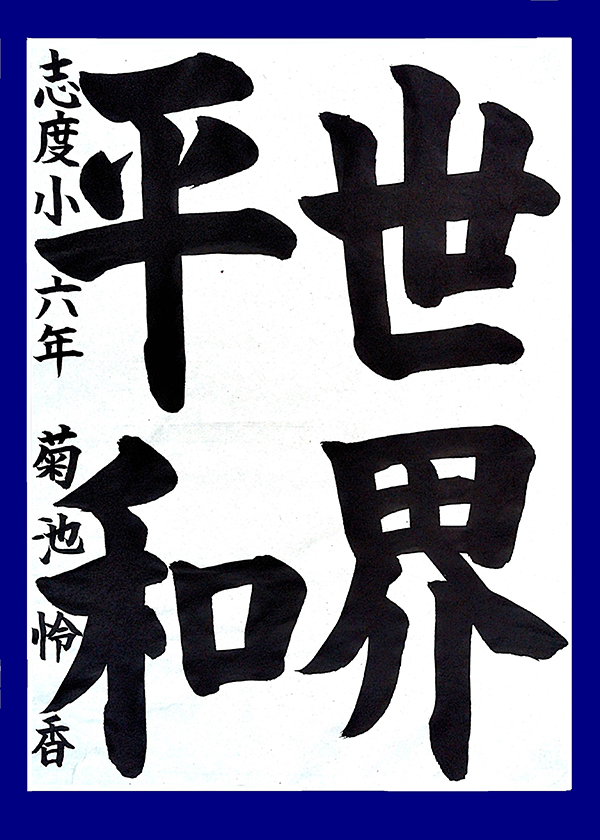 世界
平和
志度小 六年 菊池怜香